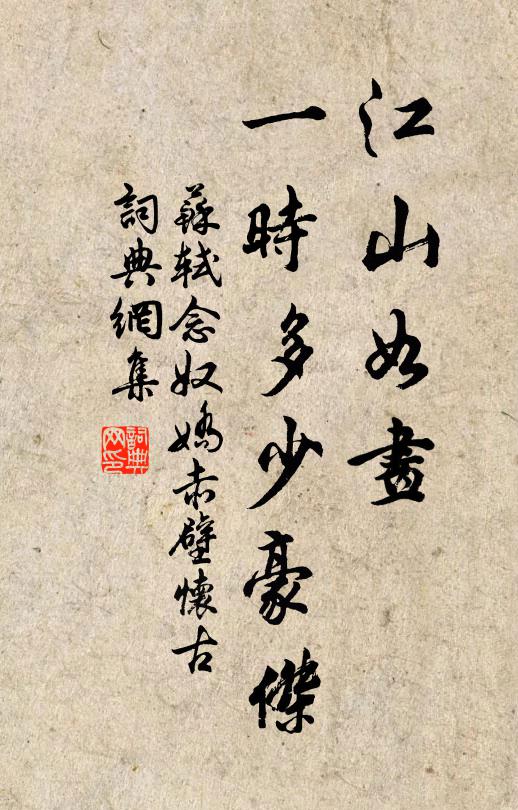 江山如畫
一時多少豪傑
蘇軾念奴嬌赤壁懷古
詞典網集
詞典网印